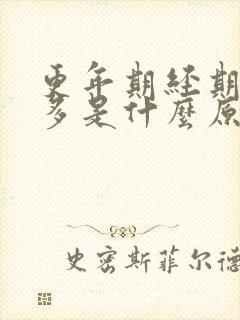 更年期经期
多是什麼原
史密斯菲尔德